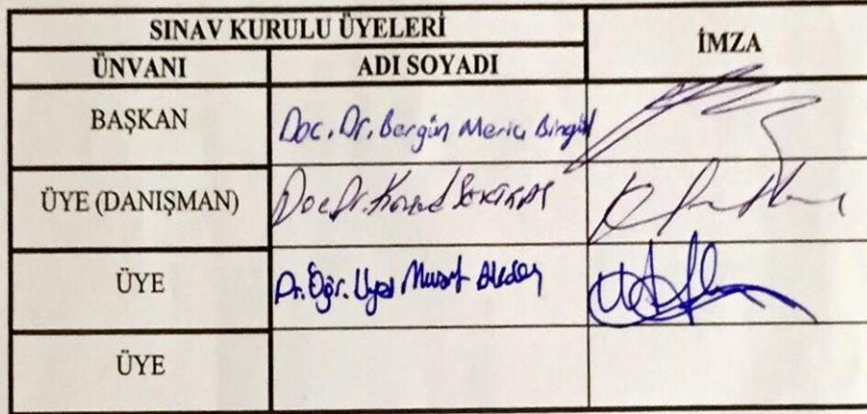 SINAV KURULU ÜYELERİ
İMZA
ÜNVANI ADI SOYADI
BAŞKAN Doc. Dr. Bergün Meriç Bingül
ÜYE (DANIŞMAN) Doc Dr.
ÜYE Dr. Öğr. Üyesi Murat
ÜYE